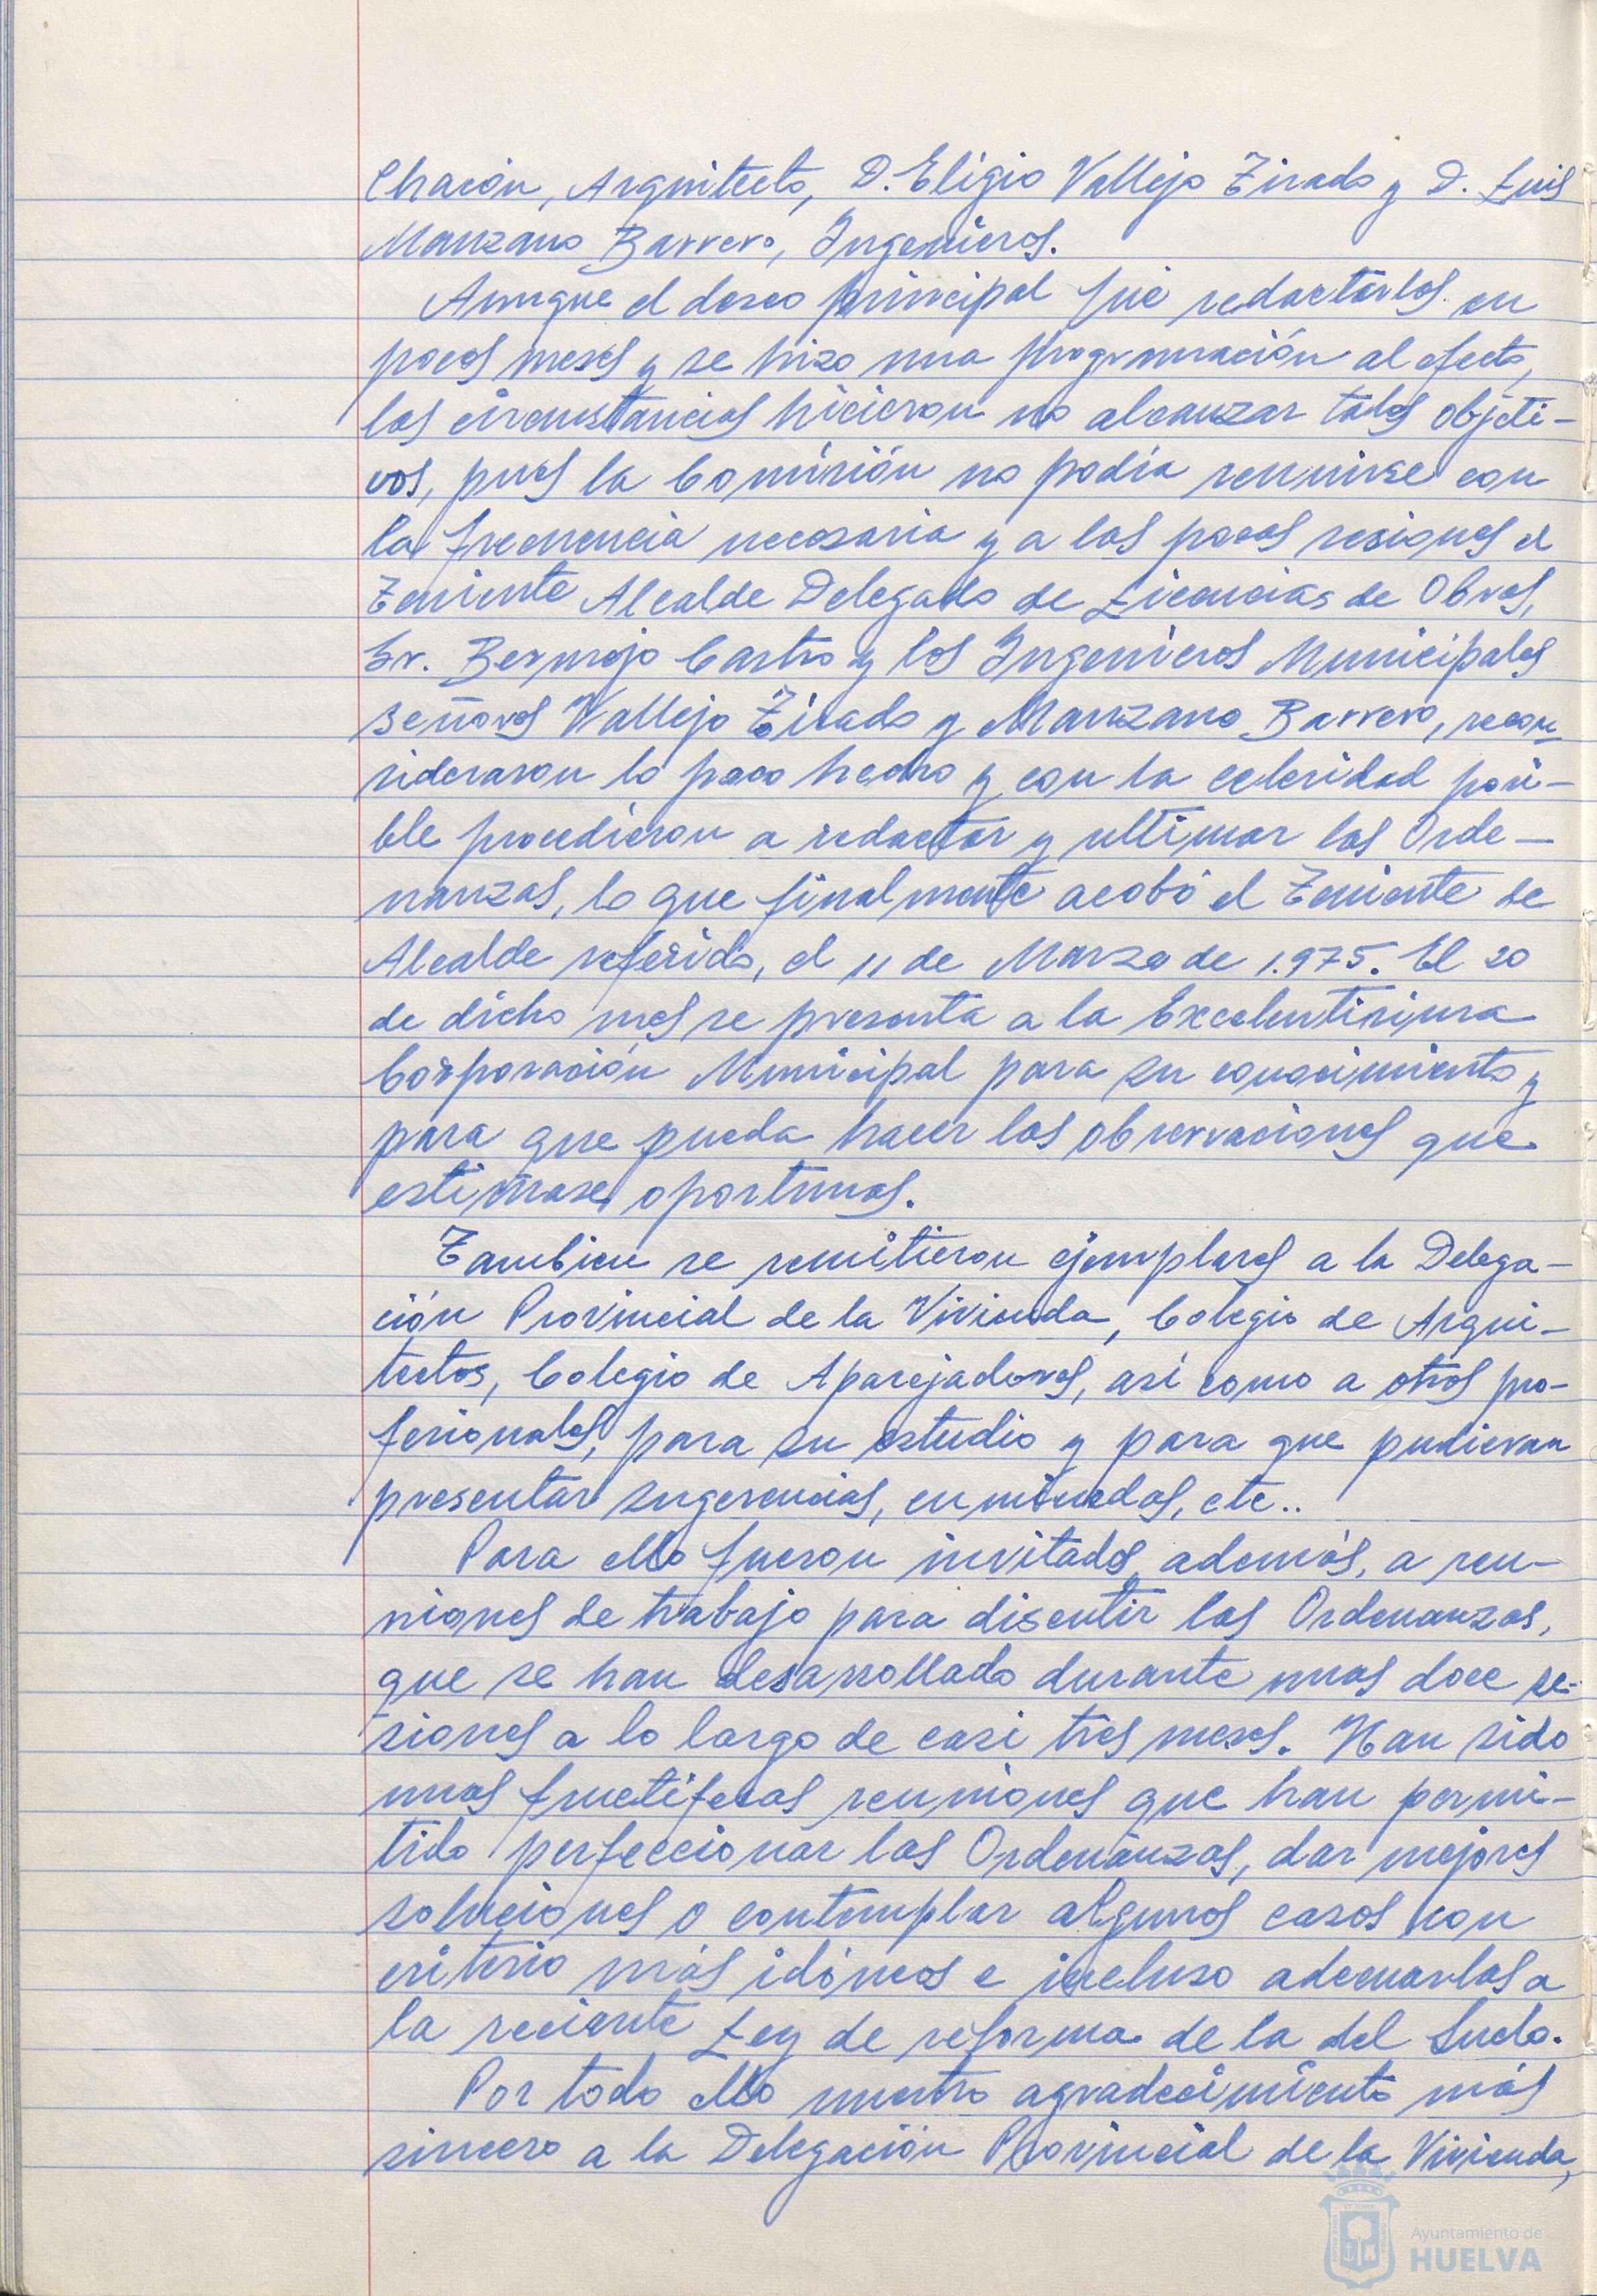 Chacón, Arquitecto, D. Eligio Vallejo Tirado y D. Luis
Manzano Barrero, Ingenieros.
Aunque el deseo principal fué redactarlos en
pocos meses y se hizo una programación al efecto,
las circunstancias hicieron no alcanzar tales objeti-
vos, pues la Comisión no podía reunirse con
la frecuencia necesaria y a las pocas sesiones el
Teniente Alcalde Delegado de Licencias de Obras,
Sr. Bermejo Castro y los Ingenieros Municipales
señores Vallejo Tirado y Manzano Barrero, recon-
sideraron lo poco hecho y con la celeridad posi-
ble procedieron a redactar y ultimar las Orde-
nanzas, lo que finalmente acabó el Teniente de
Alcalde referido, el 11 de Marzo de 1.975. El 20
de dicho mes se presenta a la Excelentísima
Corporación Municipal para su conocimiento y
para que pueda hacer las observaciones que
estimase oportunas.
Tambien se remitieron ejemplares a la Delega-
ción Provincial de la Vivienda, Colegio de Arqui-
tectos, Colegio de Aparejadores, asi como a otros pro-
fesionales, para su estudio y para que pudieran
presentar sugerencias, enmiendas, etc..
Para ello fueron invitados, además, a reu-
niones de trabajo para discutir las Ordenanzas,
que se han desarrollado durante unas doce se-
siones a lo largo de casi tres meses. Han sido
unas fructíferas reuniones que han permi-
tido perfeccionar las Ordenanzas, dar mejores
soluciones o contemplar algunos casos con
criterio más idóneos e incluso adecuarlas a
la reciente Ley de reforma de la del Suelo.
Por todo ello nuestro agradecimiento más
sincero a la Delegación Provincial de la Vivienda,
Ayuntamiento de
HUELVA